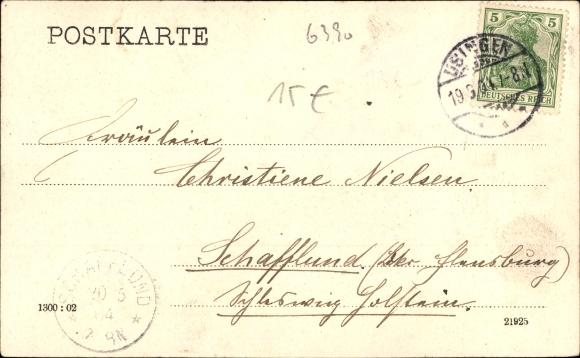 POSTKARTE
6390
5 5
USINGEN
DEUTSCHES REICH
15 €
Fräulein
Christiene Nielsen.
Schafflund (Kr. Flensburg)
Schleswig Holstein.
SCHAFFLUND
1300 : 02
21925